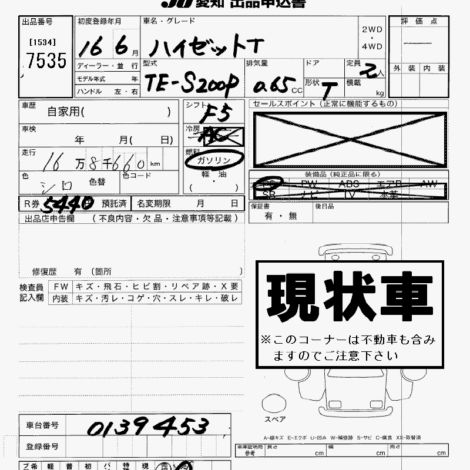 JU 愛知 出品申込書
出品番号 初度登録年月 車名・グレード 2WD ・ 4WD 評価点
[1534] 7535
16年 6月 ハイゼットT
ディーラー・並行 型式 排気量 ドア 定員 外装 内装
モデル年式 年
ハンドル 左・右 TE-S200P 0.65 CC 形状 T 2人 積載 kg
車歴 自家用( ) シフト F5 セールスポイント (正常に機能するもの)
車検 年 月( 日) 冷房
走行 燃料
16万8千660km ガソリン
色 色替 色コード 軽油
シロ ( ) 装備品(純正品に限る)
PS PW ABS エアB AW
SR ナビ TV 本革
R券 5440 預託済 名変期限 月 日 保証書 有・無 後日品
出品店申告欄 (不良内容・欠品・注意事項等記載)
修復歴 有 (箇所 )
検査員記入欄 FW キズ・飛石・ヒビ割・リペア跡・X要
内装 キズ・汚レ・コゲ・穴・スレ・キレ・破レ
現状車
※このコーナーは不動車も含み
ますのでご注意下さい
スペア
車台番号 0139453
登録番号
cm cm cm